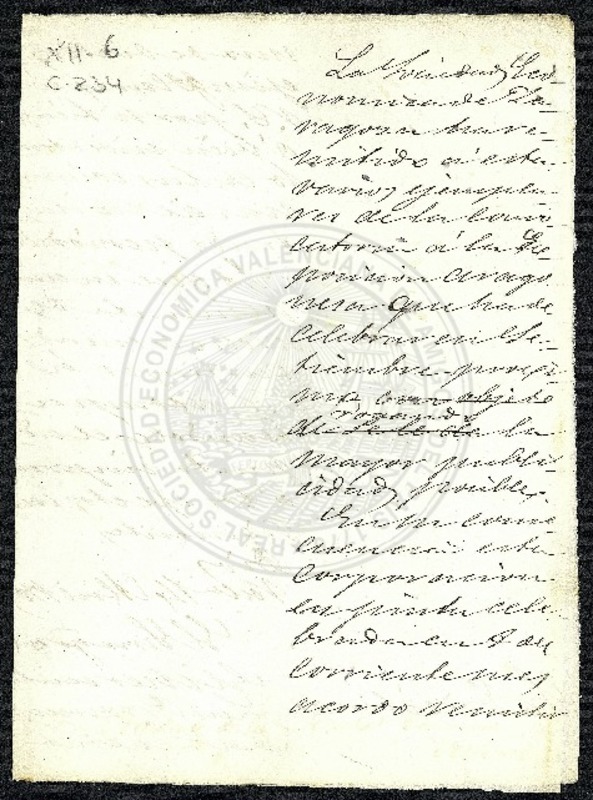 XII-6
C-234
La Sociedad Eco-
nomica de Za-
ragoza ha re-
mitido a esta
varios ejempla-
res de la convo
catoria á la Es
posicion arago
nesa que ha de
celebrar en Se-
tiembre proxi
mo, con objeto
rogando
de se le de la
mayor publi
cidad posible.
En su conse
cuencia esta
Corporacion
en junta cele
brada en 8 del
corriente mes
acordó remitir
REAL SOCIEDAD ECONOMICA VALENCIANA